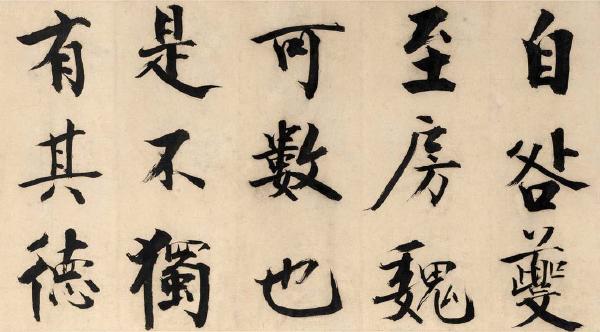 自咎夔
至房魏
可數也
是不獨
有其德